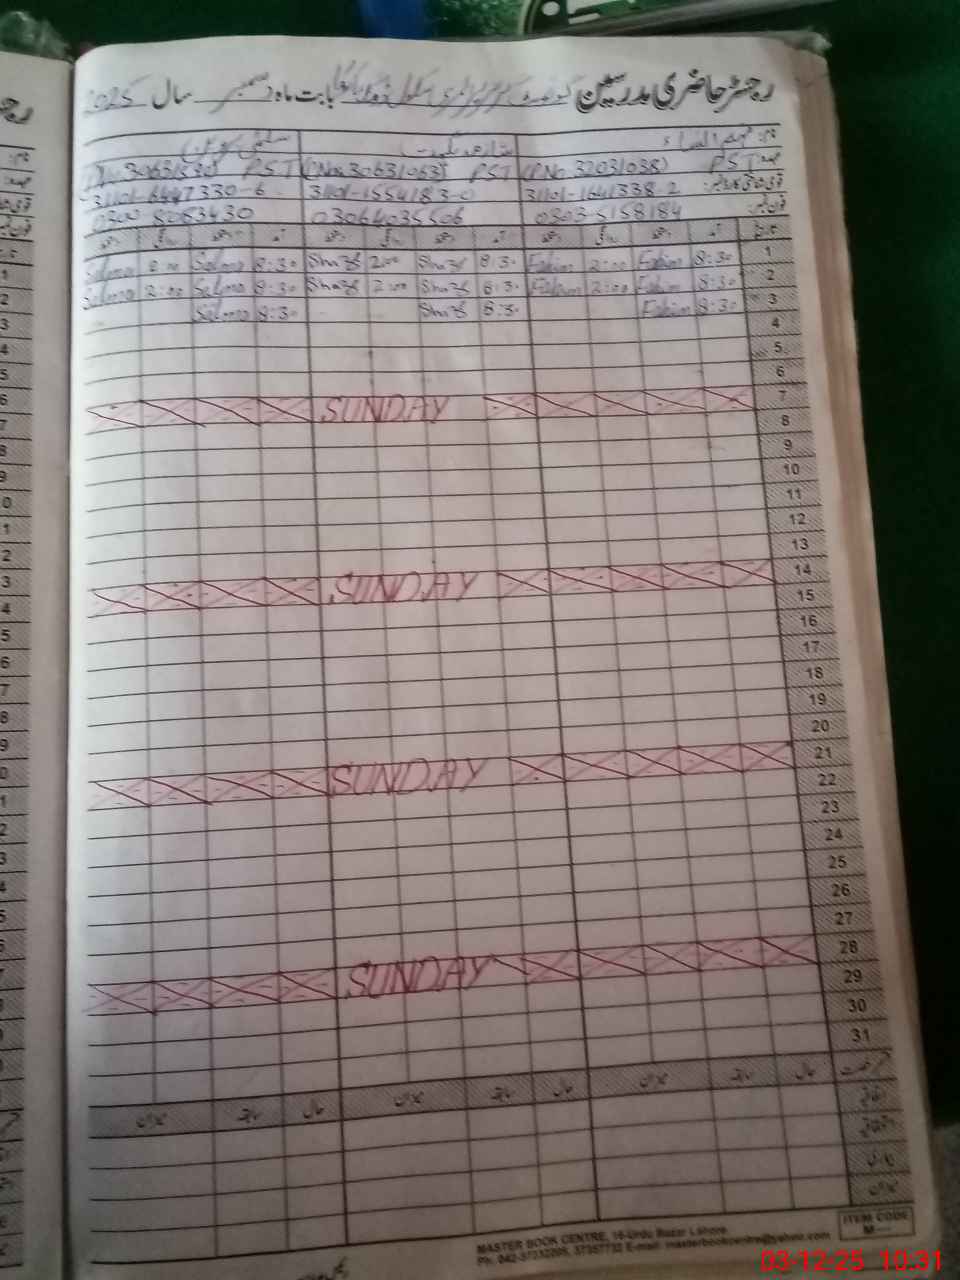 رجسٹر حاضری مدرسین گورنمنٹ گرلز پرائمری سکول بابت ماہ دسمبر سال 2025
نام: فہیم النساء
عہدہ: PST (PNo. 32031038) PST (PNo. 30631063) PST
قومی شناختی کارڈ نمبر: 31101-1641338-2 31101-1554183-0 31101-6447330-6
فون نمبر: 0303-5158184 03064035506 0300-8063430
تاریخ آمد دستخط روانگی دستخط آمد دستخط روانگی دستخط آمد دستخط روانگی دستخط
1 8:30 Fahim 2:00 Fahim 8:30 Shazf 2:00 Shazf 8:30 Saloma Saloma
2 8:30 Fahim 2:00 Fahim 8:30 Shazf 2:00 Shazf 8:30 Saloma 2:00 Saloma
3 8:30 Fahim 8:30 Shazf 8:30 Saloma
4
5
6
7 SUNDAY
8
9
10
11
12
13
14 SUNDAY
15
16
17
18
19
20
21 SUNDAY
22
23
24
25
26
27
28 SUNDAY
29
30
31
حال سابقہ میزان حال سابقہ میزان حال سابقہ میزان
اتفاقیہ
بیماری
میزان
ITEM CODE
M
MASTER BOOK CENTRE, 16-Urdu Bazar Lahore.
Ph. 042-37232205, 37357732 E-mail: masterbookcentre@yahoo.com
03-12-25 10:31